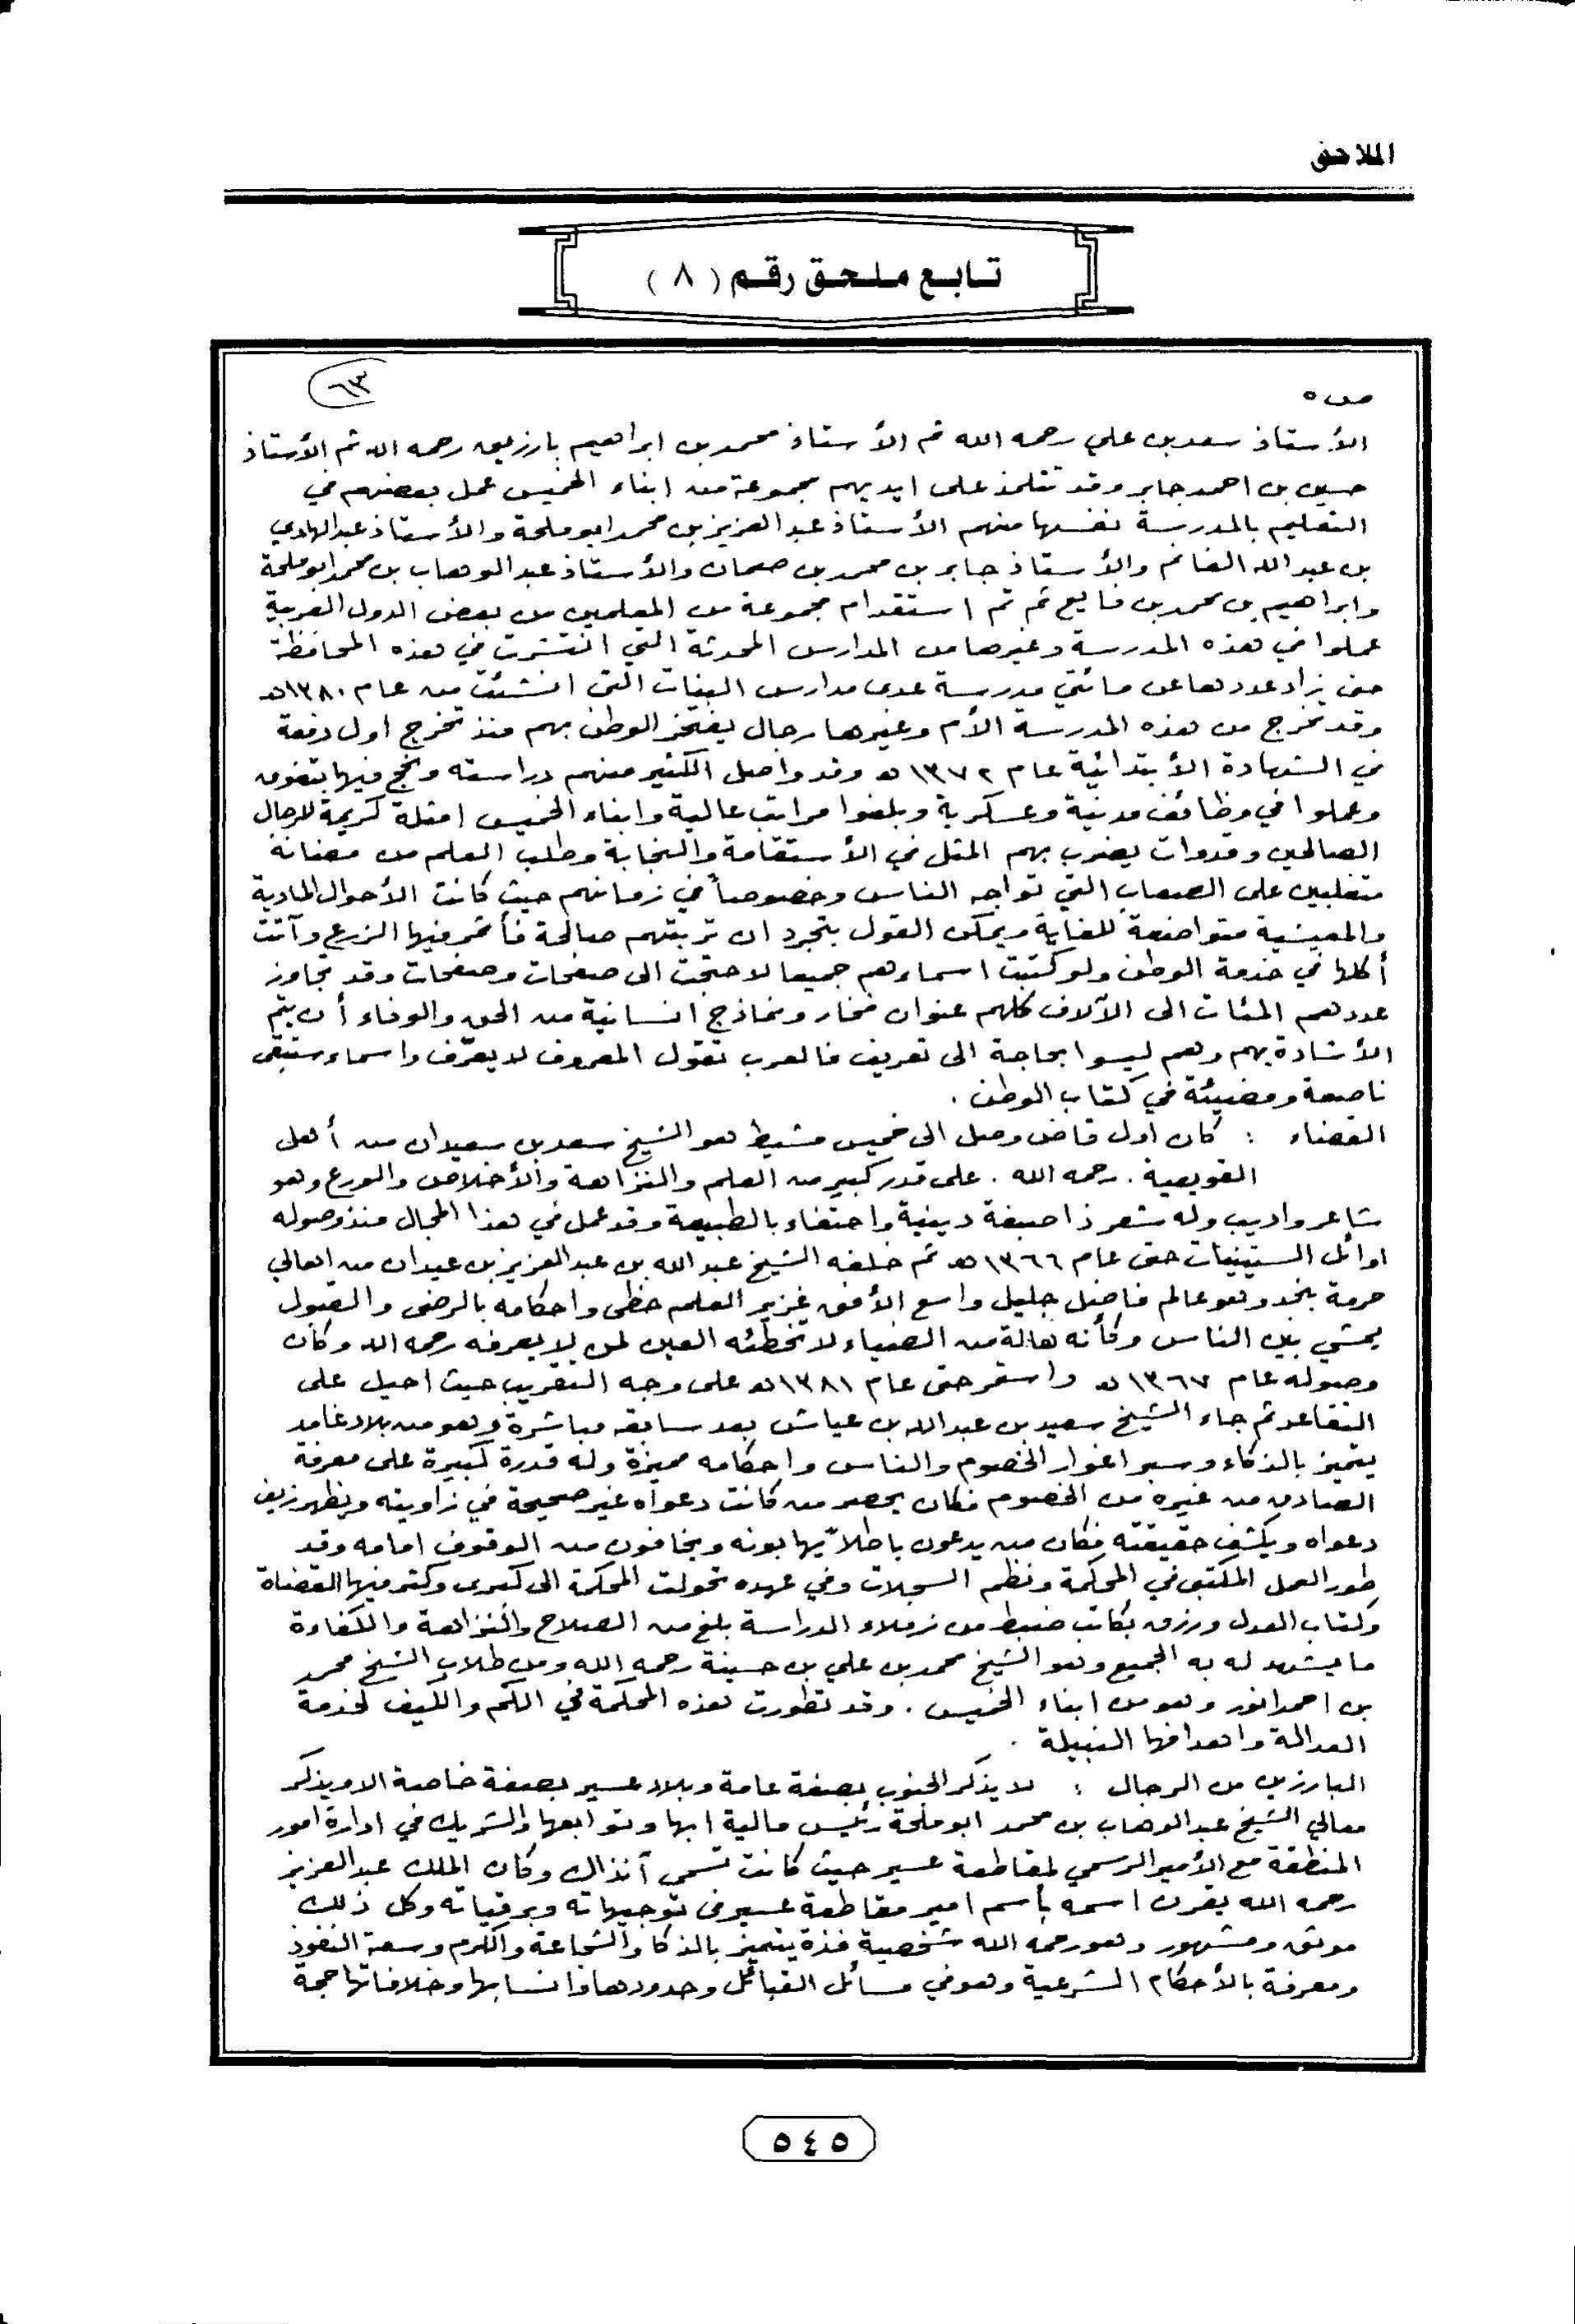 الملاحق
تابع ملحق رقم ( ٨ )
٦٣
ص ٥
الأستاذ سعد بن علي رحمه الله ثم الأستاذ محمد بن ابراهيم بارزيق رحمه الله ثم الأستاذ
حسين بن احمد جابر وقد تتلمذ على ايديهم مجموعة من ابناء الخميس عمل بعضهم في
التعليم بالمدرسة نفسها منهم الأستاذ عبد العزيز بن محمد ابو ملحة والأستاذ عبدالهادي
بن عبد الله الغانم والأستاذ جابر بن محمد بن صمان والأستاذ عبد الوهاب بن محمد ابو ملحة
وابراهيم بن محمد بن فايع ثم تم استقدام مجموعة من المعلمين من بعض الدول العربية
عملوا في هذه المدرسة وغيرها من المدارس المحدثة التي انتشرت في هذه المحافظة
حتى زاد عددها عن مائتي مدرسة عدى مدارس البنات التي انشئت من عام ١٣٨٠هـ
وقد تخرج من هذه المدرسة الأم وغيرها رجال يفتخر الوطن بهم منذ تخرج اول دفعة
في الشهادة الأبتدائية عام ١٣٧٢ هـ وقد واصل الكثير منهم دراسته ونجح فيها بتفوق
وعملوا في وظائف مدنية وعسكرية وبلغوا مراتب عالية وابناء الخميس امثلة كريمة للرجال
الصالحين وقدوات يضرب بهم المثل في الأستقامة والنجابة وطلب العلم من مضانه
متغلبين على الصعاب التي تواجه الناس وخصوصاً في زمانهم حيث كانت الأحوال المادية
والمعيشية متواضعة للغاية ويمكن القول بتجرد ان تربتهم صالحة فأثمر فيها الزرع وآتت
أكلها في خدمة الوطن ولو كتبت اسماءهم جميعا لاحتجت الى صفحات وصفحات وقد تجاوز
عددهم المئات الى الآلاف كلهم عنوان فخار ونماذج انسانية من الحق والوفاء أن يتم
الأشادة بهم وهم ليسوا بحاجة الى تعريف فالعرب تقول المعروف لا يعرّف واسماء ستبقى
ناصعة ومضيئة في كتاب الوطن .
القضاء : كان اول قاض وصل الى خميس مشيط هو الشيخ سعد بن سعيدان من أهل
القويعية . رحمه الله . على قدر كبير من العلم والنزاهة والأخلاص والورع وهو
شاعر واديب وله شعر ذا صبغة دينية واحتفاء بالطبيعة وقد عمل في هذا المجال منذ وصوله
اوائل الستينيات حتى عام ١٣٦٦هـ ثم خلفه الشيخ عبد الله بن عبد العزيز بن عيدان من اهالي
حرمة بنجد وهو عالم فاضل جليل واسع الأفق غزير العلم حظي واحكامه بالرضى والقبول
يمشي بين الناس وكأنه هالة من الضياء لا تخطئه العين لمن لا يعرفه رحمه الله وكان
وصوله عام ١٣٦٧هـ واستمر حتى عام ١٣٨١هـ على وجه التقريب حيث احيل على
التقاعد ثم جاء الشيخ سعيد بن عبدالله بن عياش بعد سابقه مباشرة وهو من بلاد غامد
يتميز بالذكاء وسبر اغوار الخصوم والناس واحكامه مميزة وله قدرة كبيرة على معرفة
الصادق من غيره من الخصوم فكان يحصر من كانت دعواه غير صحيحة في زاويته ويظهر زيف
دعواه ويكشف حقيقته فكان من يدعون باطلاً يهابونه ويخافون من الوقوف امامه وقد
طور العمل المكتبي في المحكمة ونظم السجلات وفي عهده تحولت المحكمة الى كبرى وكثر فيها القضاة
وكتاب العدل ورزق بكاتب ضبط من زملاء الدراسة بلغ من الصلاح والنزاهة والكفاءة
ما يشهد له به الجميع وهو الشيخ محمد بن علي بن حسينة رحمه الله ومن طلاب الشيخ محمد
بن احمد انور وهو من ابناء الخميس . وقد تطورت هذه المحكمة في الكم والكيف لخدمة
العدالة واهدافها النبيلة .
البارزين من الرجال : لا يذكر الجنوب بصفة عامة وبلاد عسير بصفة خاصة الا ويذكر
معالي الشيخ عبد الوهاب بن محمد ابو ملحة رئيس مالية ابها وتوابعها والشريك في ادارة امور
المنطقة مع الأمير الرسمي لمقاطعة عسير حيث كانت تسمى آنذاك وكان الملك عبد العزيز
رحمه الله يقرن اسمه بأسم امير مقاطعة عسير في توجيهاته وبرقياته وكل ذلك
موثق ومشهور وهو رحمه الله شخصية فذة يتميز بالذكاء والشجاعة والكرم وسعة النفوذ
ومعرفة بالأحكام الشرعية وهو في مسائل القبائل وحدودها وانسابها وخلافاتها حجة
٥٤٥